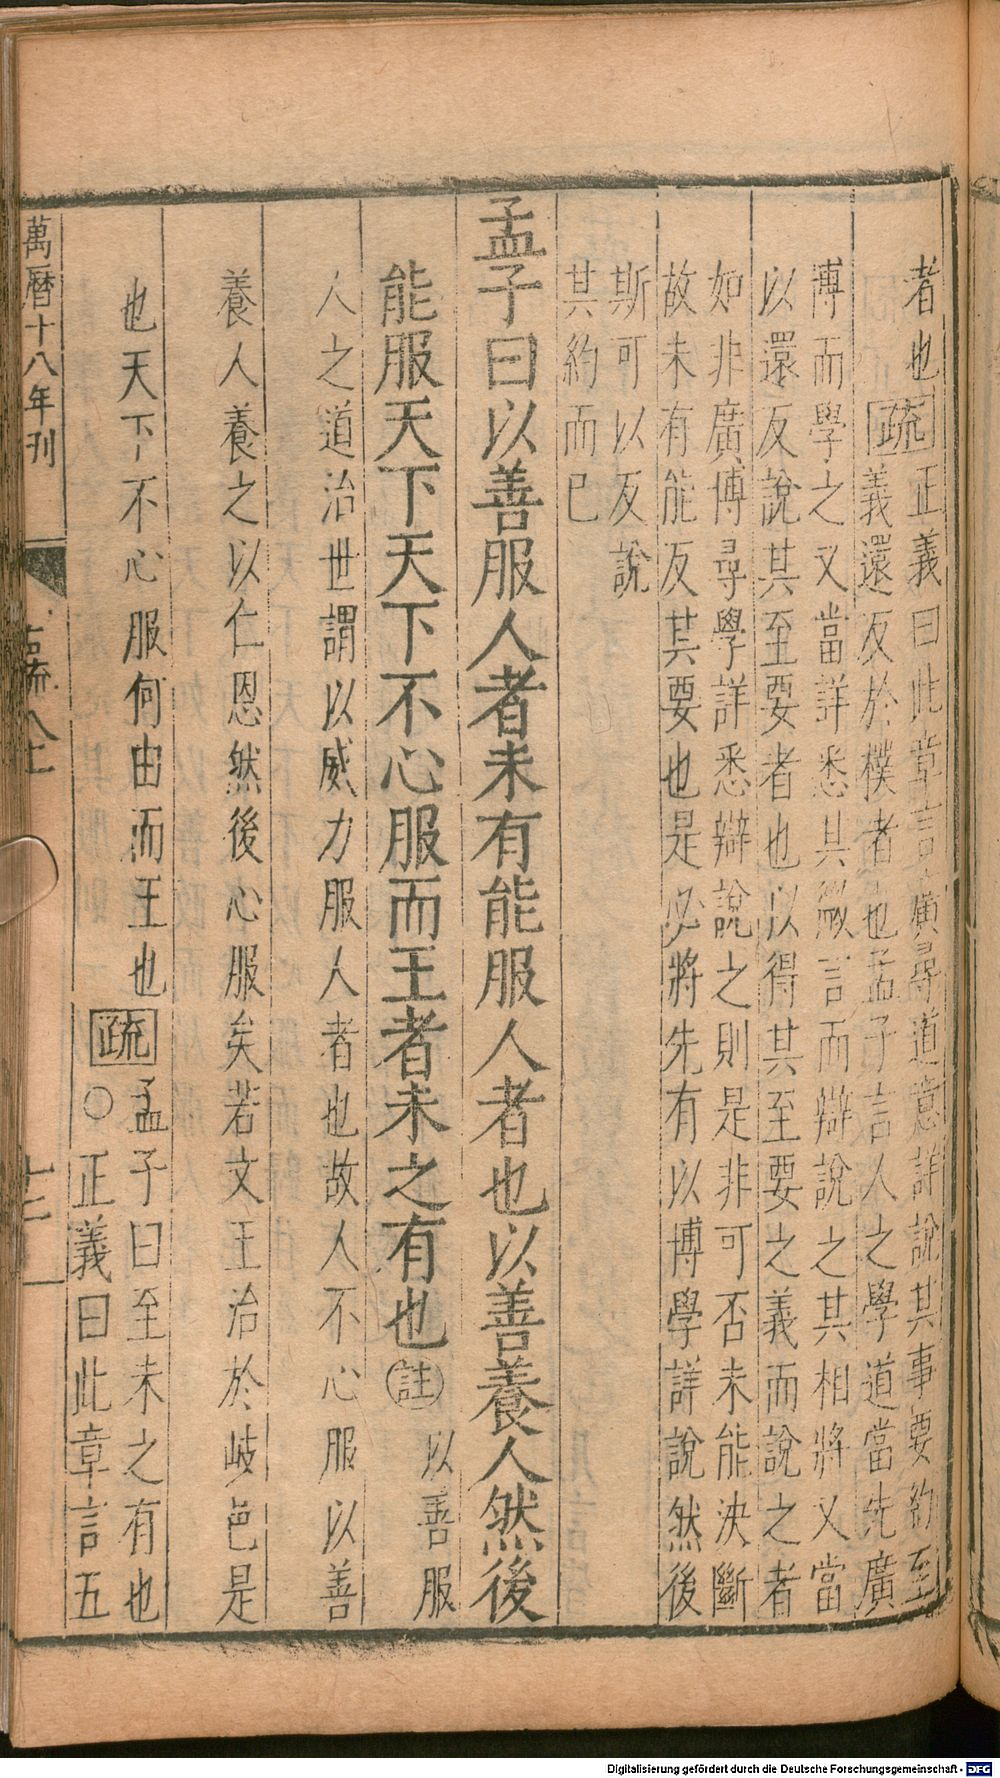 者也疏正義曰此章言廣尋道意詳說其事要約至
義還反於樸者也孟子言人之學道當先廣
博而學之又當詳悉其微言而辯說之其相將又當
以還反說其至要者也以得其至要之義而說之者
如非廣博尋學詳悉辯說之則是非可否未能決斷
故未有能反其要也是必將先有以博學詳說然後
斯可以反說
其約而已
孟子曰以善服人者未有能服人者也以善養人然後
能服天下天下不心服而王者未之有也註以善服
人之道治世謂以威力服人者也故人不心服以善
養人養之以仁恩然後心服矣若文王治於岐邑是
也天下不心服何由而王也疏孟子曰至未之有也
○正義曰此章言五
萬曆十八年刊
孟疏八上
十二
Digitalisierung gefördert durch die Deutsche Forschungsgemeinschaft - DFG